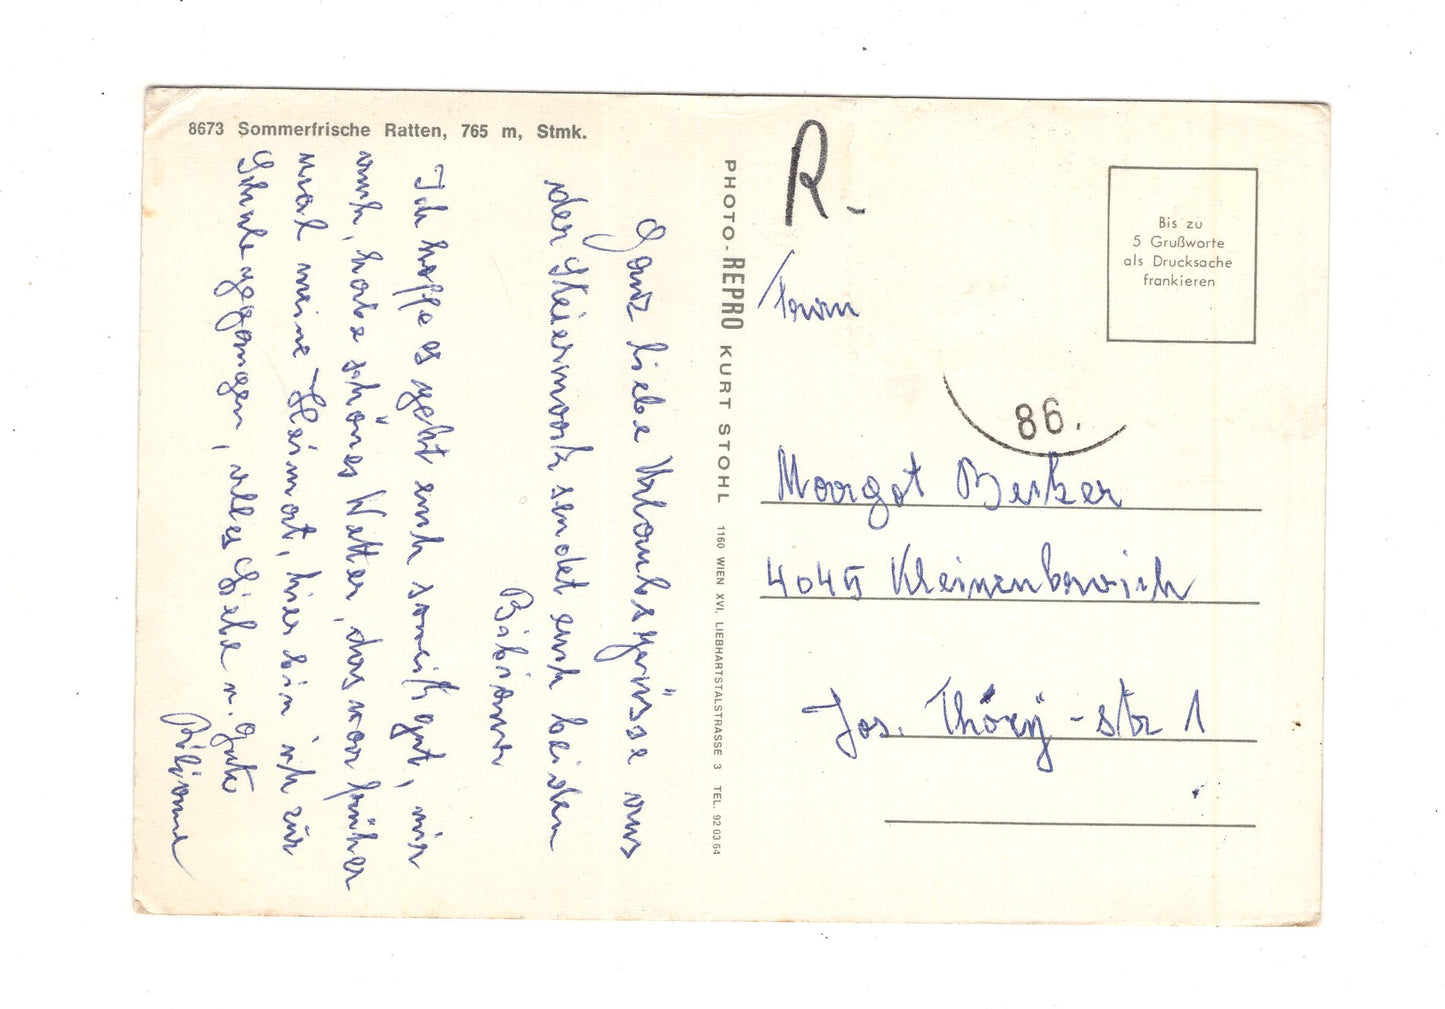 8673 Sommerfrische Ratten, 765 m, Stmk.
Ganz liebe Urlaubsgrüsse aus
der Steiermark sendet euch beiden
Bibiane
Ich hoffe es geht euch soweit gut, mir
auch, habe schönes Wetter, das war früher
mal meine Heimat, hier bin ich zur
Schule gegangen, alles Liebe u. Gute
Bibiane
PHOTO-REPRO KURT STOHL 1160 WIEN XVI, LIEBHARTSTALSTRASSE 3 TEL. 92 03 64
R-
Bis zu
5 Grußworte
als Drucksache
frankieren
86.
Margot Becker
4045 Kleinenbroich
Jos. Thöry-str 1